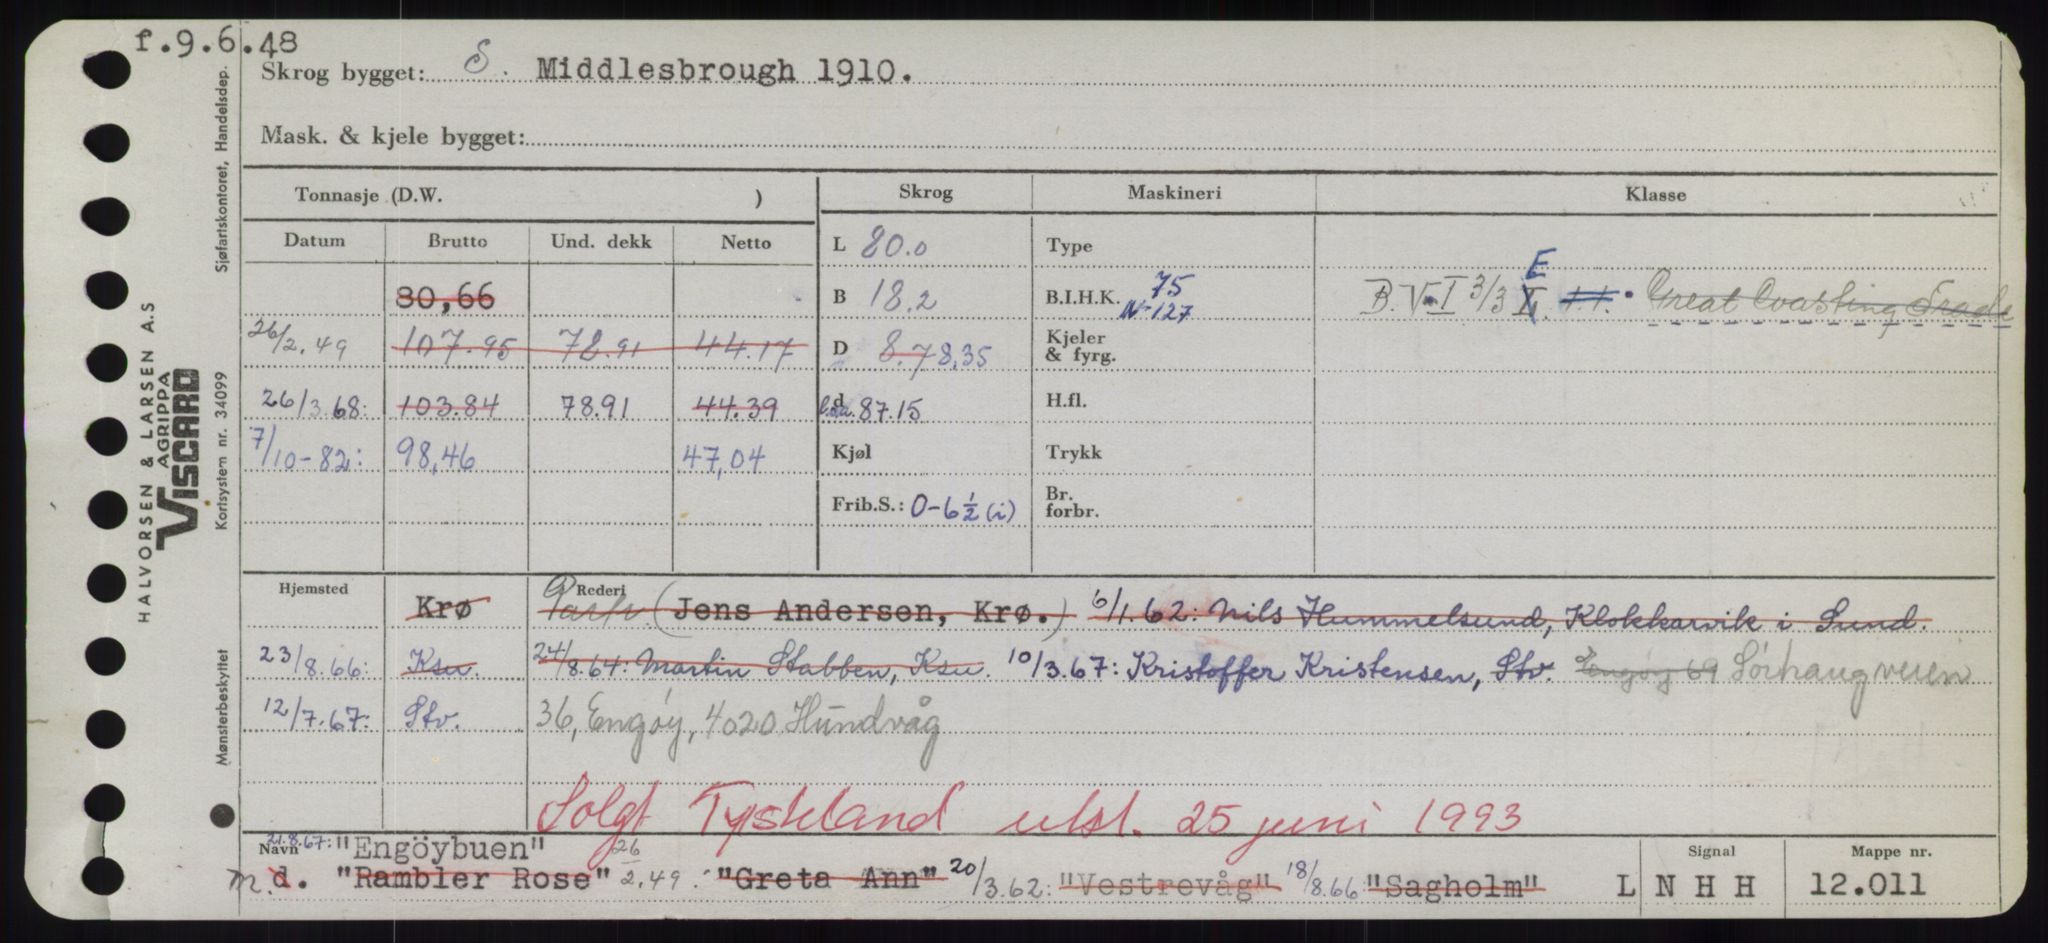 f.9.6.48
Skrog bygget: S. Middlesbrough 1910.
Mask. & kjele bygget:
Tonnasje (D.W. )
Skrog
Maskineri
Klasse
Datum Brutto Und. dekk Netto
L 80.0
Type
80,66
B 18.2
B.I.H.K. 75
N-127
E
B. V-I 3/3 I. Great Coasting Trade
26/2.49 107.95 78.91 44.17
D 8.7 8,35
Kjeler
& fyrg.
26/3.68: 103.84 78.91 44.39
d l.o.a. 87.15
H.fl.
7/10-82: 98,46 47,04
Kjøl
Trykk
Frib.S.: 0-6 1/2 (i)
Br.
forbr.
Hjemsted
Rederi
Krø (Jens Andersen, Krø.) 6/1.62: Nils Hummelsund, Klokkarvik i Sund.
23/8.66: Ksu. 24/8.64: Martin Stabben, Ksu. 10/3.67: Kristoffer Kristensen, Stv. Engøy 69 Sörhaugveien
12/7.67: Stv. 36, Engöy, 4020 Hundvåg
Solgt Tyskland utsl. 25 juni 1993
Navn 21.8.67: "Engöybuen"
m. d. "Rambler Rose" 26/2.49: "Greta Ann" 20/3.62: "Vestrevåg" 18/8.66 "Sagholm"
Signal
L N H H
Mappe nr.
12.011
HALVORSEN & LARSEN A.S
AGRIPPA
VISCARD
Sjøfartskontoret, Handelsdep.
Kortsystem nr. 34099
Mønsterbeskyttet